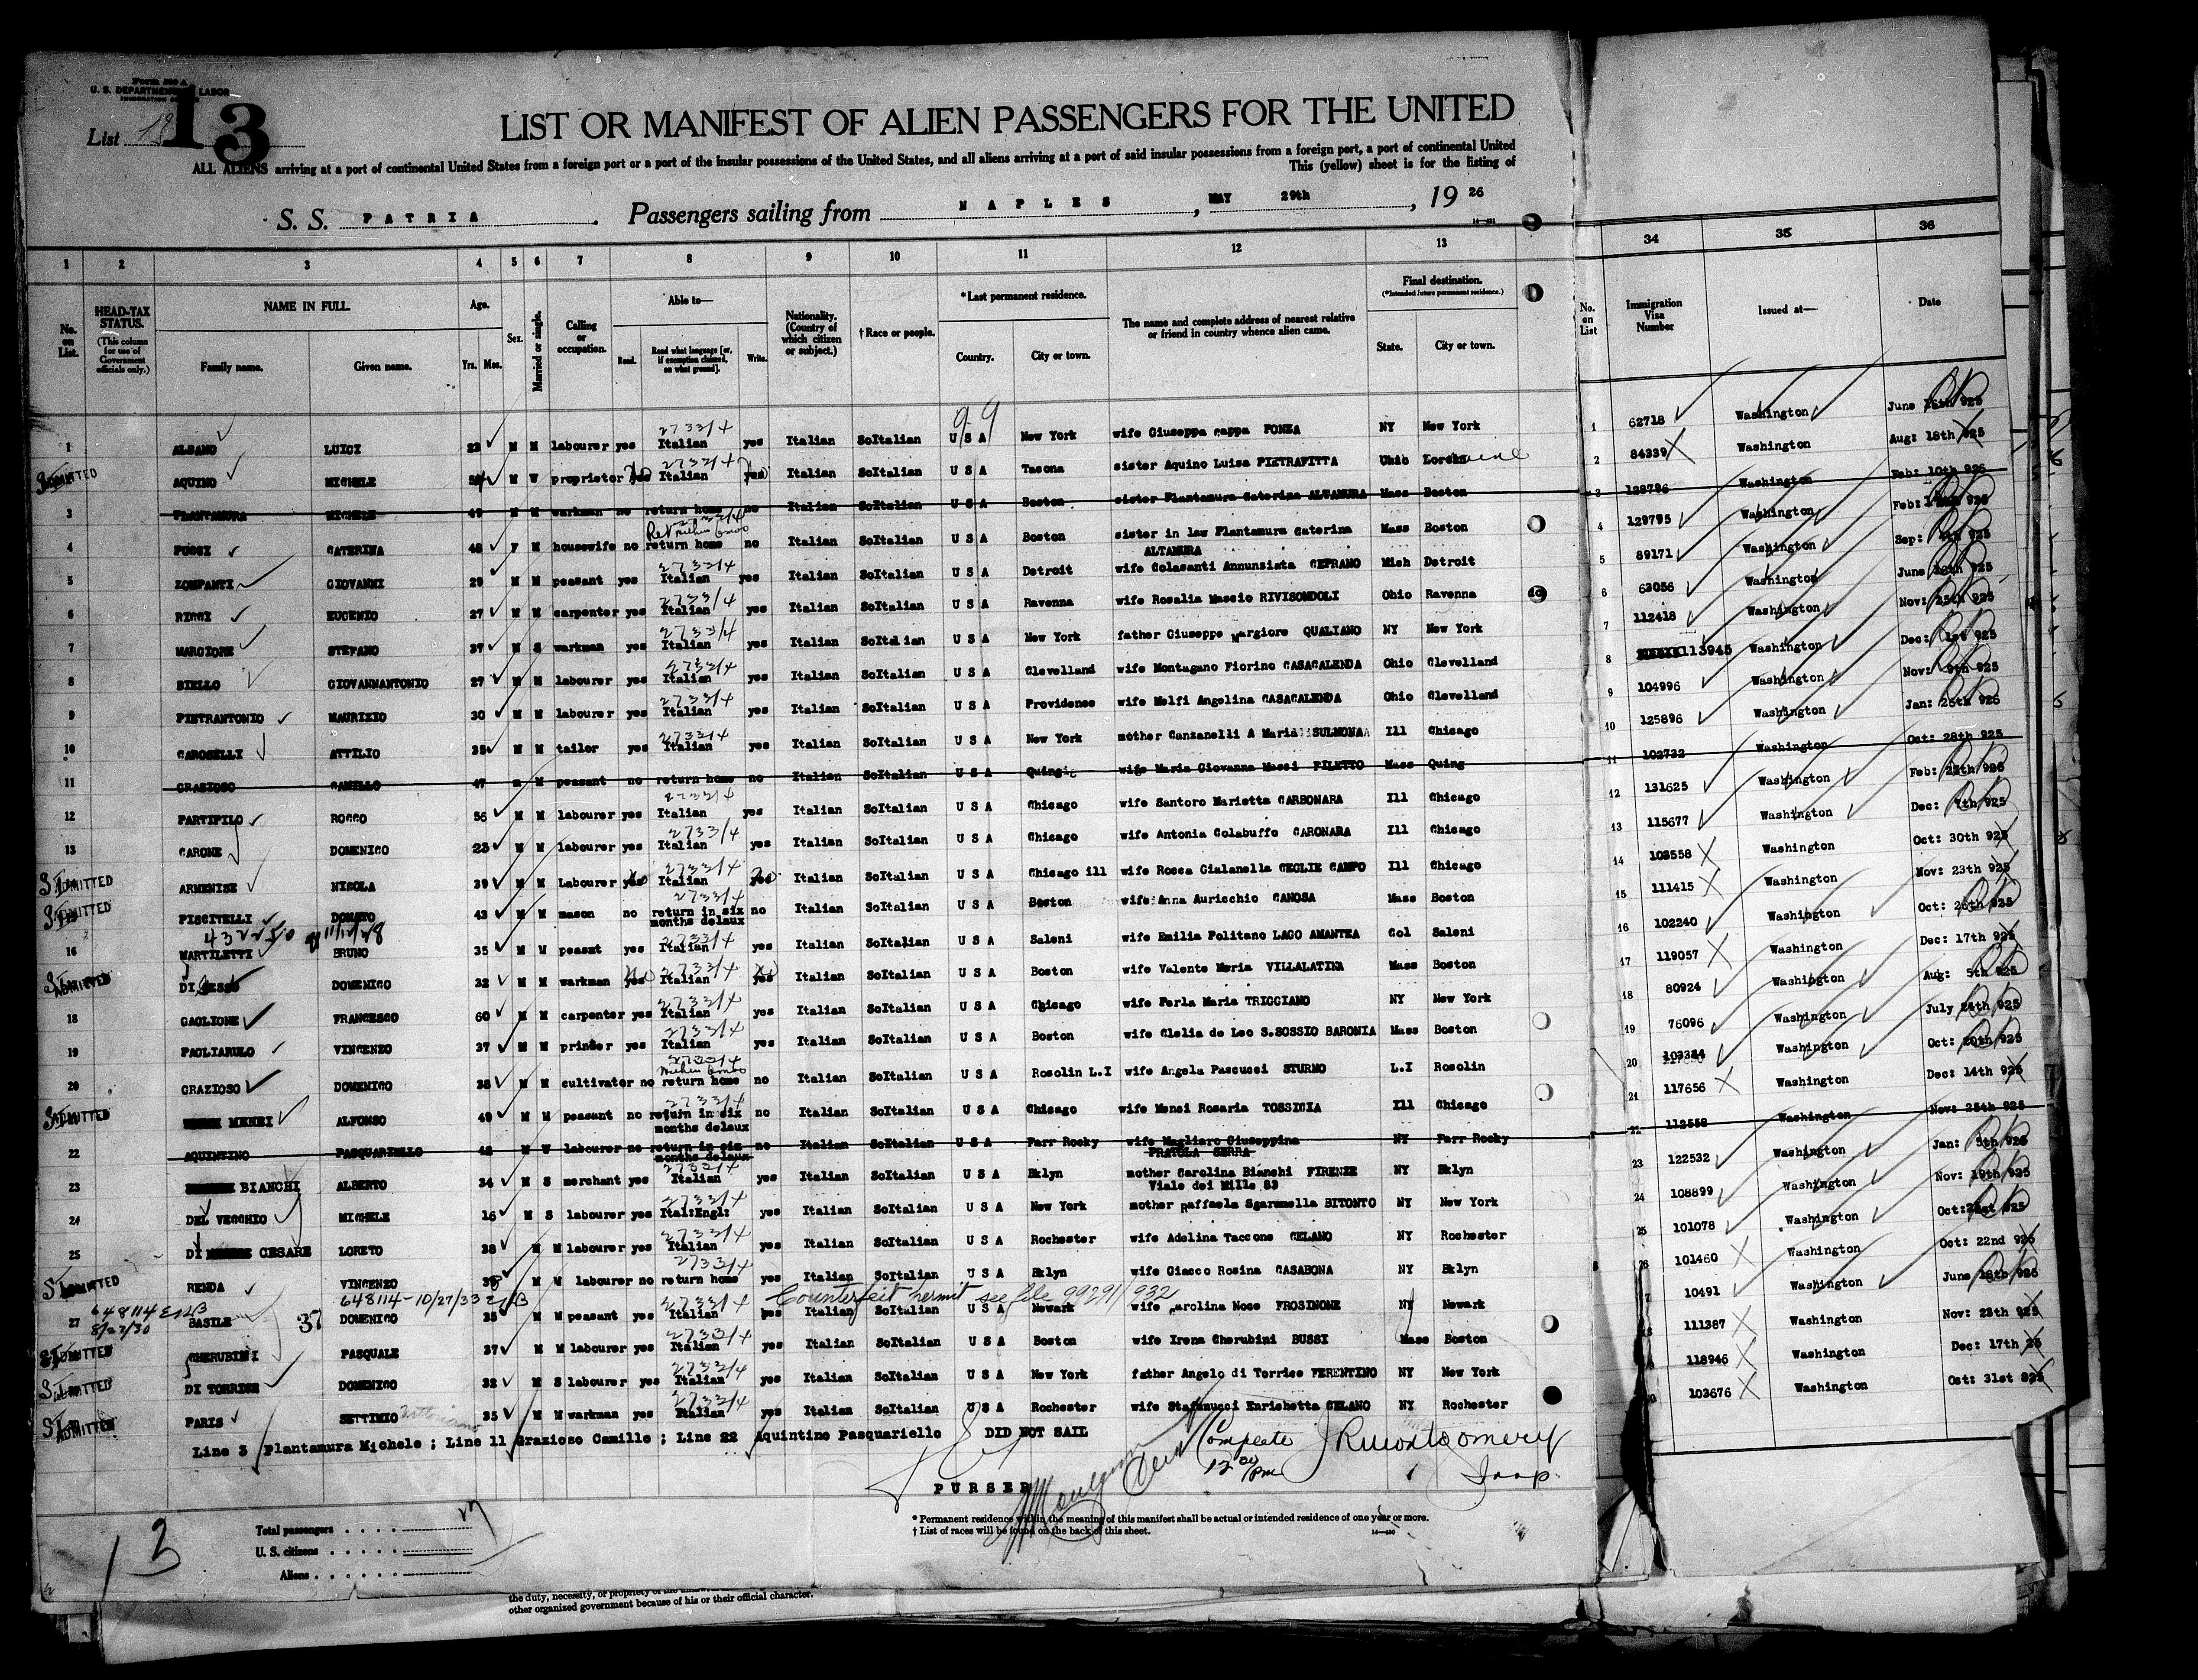 Form 500 A
U. S. DEPARTMENT LABOR
IMMIGRATION
List 13
13
LIST OR MANIFEST OF ALIEN PASSENGERS FOR THE UNITED
ALL ALIENS arriving at a port of continental United States from a foreign port or a port of the insular possessions of the United States, and all aliens arriving at a port of said insular possessions from a foreign port, a port of continental United
This (yellow) sheet is for the listing of
S. S. PATRIA Passengers sailing from NAPLES, MAY 29th, 19 26
1 2 3 4 5 6 7 8 9 10 11 12 13 34 35 36
No. on List.
HEAD-TAX STATUS. (This column for use of Government officials only.)
NAME IN FULL. Family name. Given name.
Age. Yrs. Mos.
Sex.
Married or single.
Calling or occupation.
Able to— Read. Read what language [or, if exemption claimed, on what ground]. Write.
Nationality. (Country of which citizen or subject.)
† Race or people.
*Last permanent residence. Country. City or town.
The name and complete address of nearest relative or friend in country whence alien came.
Final destination. (*Intended future permanent residence.) State. City or town.
No. on List
Immigration Visa Number
Issued at—
Date
1 ALBANO LUIGI 23 M M labourer yes Italian yes Italian SoItalian U S A New York wife Giuseppa Cappa FONZA NY New York 1 62718 Washington June 925
ADMITTED AQUINO MICHELE M W proprietor yes Italian yes Italian SoItalian U S A Tacona sister Aquino Luisa PIETRAFITTA Ohio Lorain 2 84339 Washington Aug: 18th 925
3 PLANTAMURA MICHELE 49 M M workman no return home no Italian SoItalian U S A Boston sister Plantamura Caterina ALTAMURA Mass Boston 3 128796 Washington Feb: 10th 926
4 PUGGI CATERINA 48 F M housewife no return home no Italian SoItalian U S A Boston sister in law Plantamura Caterina ALTAMURA Mass Boston 4 129795 Washington Feb: 926
5 ZOMPANTI GIOVANNI 29 M M peasant yes Italian yes Italian SoItalian U S A Detroit wife Colasanti Annunziata CEPRANO Mich Detroit 5 89171 Washington Sep: 925
6 RICCI EUGENIO 27 M M carpenter yes Italian yes Italian SoItalian U S A Ravenna wife Rosalia Mascio RIVISONDOLI Ohio Ravenna 6 63056 Washington June 18th 925
7 MARGIONE STEFANO 37 M S workman yes Italian yes Italian SoItalian U S A New York father Giuseppe Margiore QUALIANO NY New York 7 112418 Washington Nov: 25th 925
8 BIELLO GIOVANNANTONIO 27 M M labourer yes Italian yes Italian SoItalian U S A Clevelland wife Montagano Fiorino CASACALENDA Ohio Clevelland 8 113945 Washington Dec: 1st 925
9 PIETRANTONIO MAURIZIO 30 M M labourer yes Italian yes Italian SoItalian U S A Providense wife Melfi Angelina CASACALENDA Ohio Clevelland 9 104996 Washington Nov: 9th 925
10 CAROSELLI ATTILIO 35 M M tailor yes Italian yes Italian SoItalian U S A New York mother Canzanelli A Maria SULMONA Ill Chicago 10 125896 Washington Jan: 25th 926
11 GRAZIOSO CAMILLO 47 M M peasant no return home no Italian SoItalian U S A Quing wife Maria Giovanna Massi FILETTO Mass Quing 11 102732 Washington Oct: 28th 925
12 PARTIPILO ROCCO 56 M M labourer yes Italian yes Italian SoItalian U S A Chicago wife Santoro Marietta CARBONARA Ill Chicago 12 131625 Washington Feb: 25th 926
13 CARONE DOMENICO 23 M M labourer yes Italian yes Italian SoItalian U S A Chicago wife Antonia Colabuffo CARONARA Ill Chicago 13 115677 Washington Dec: 7th 925
ADMITTED ARMENISE NICOLA 39 M M Labourer yes Italian yes Italian SoItalian U S A Chicago ill wife Rosca Gialanella CEGLIE CAMPO Ill Chicago 14 103558 Washington Oct: 30th 925
ADMITTED PISCITELLI DONATO 43 M M mason no return in six months delaux no Italian SoItalian U S A Boston wife Anna Auricchio CANOSA Mass Boston 15 111415 Washington Nov: 23th 925
16 MARTILETTI BRUNO 35 M M peasnt yes Italian yes Italian SoItalian U S A Saleni wife Emilia Politano LAGO AMANTEA Col Saleni 16 102240 Washington Oct: 26th 925
ADMITTED DI DOMENICO 32 M M workman yes Italian yes Italian SoItalian U S A Boston wife Valente Maria VILLALATINA Mass Boston 17 119057 Washington Dec: 17th 925
18 GAGLIONE FRANCESCO 60 M M carpenter yes Italian yes Italian SoItalian U S A Chicago wife Perla Maria TRIGGIANO NY New York 18 80924 Washington Aug: 5th 925
19 PAGLIARULO VINCENZO 37 M M printer yes Italian yes Italian SoItalian U S A Boston wife Clelia de Leo S.SOSSIO BARONIA Mass Boston 19 76096 Washington July 24th 925
20 GRAZIOSO DOMENICO 38 M M cultivator no return home no Italian SoItalian U S A Rosolin L.I wife Angela Pascucci STURNO L.I Rosolin 20 103384 Washington Oct: 20th 925
ADMITTED MENEI ALFONSO 49 M M peasant no return in six months delaux no Italian SoItalian U S A Chicago wife Menei Rosaria TOSSICIA Ill Chicago 21 117656 Washington Dec: 14th 925
22 AQUINTINO PASQUARIELLO 48 M W labourer no return in six months delaux no Italian SoItalian U S A Farr Rocky wife Magliaro Giuseppina PRATOLA SERRA NY Farr Rocky 22 112558 Washington Nov: 25th 925
23 BIANCHI ALBERTO 34 M S merchant yes Italian yes Italian SoItalian U S A Bklyn mother Carolina Bianchi FIRENZE Viale dei Mille 83 NY Bklyn 23 122532 Washington Jan: 5th 926
24 DEL VECCHIO MICHELE 16 M S labourer yes Ital:Engl: yes Italian SoItalian U S A New York mother Raffaela Sgaramella BITONTO NY New York 24 108899 Washington Nov: 19th 925
25 DI CESARE LORETO 38 M M labourer yes Italian yes Italian SoItalian U S A Rochester wife Adelina Taccone CELANO NY Rochester 25 101078 Washington Oct: 925
ADMITTED RENDA VINCENZO M M labourer no return home yes Italian SoItalian U S A Bklyn wife Giacco Rosina CASABONA NY Bklyn 26 101460 Washington Oct: 22nd 925
648114 8/27/30 648114-10/27/33 Counterfeit permit see file 99291/932
27 BASILE 37 DOMENICO 35 M M peasant yes Italian yes Italian SoItalian U S A Newark wife Carolina Noce FROSINONE NY Newark 10491 Washington June 18th 925
ADMITTED CHERUBINI PASQUALE 37 M M labourer yes Italian yes Italian SoItalian U S A Boston wife Irena Cherubini BUSSI Mass Boston 111387 Washington Nov: 23th 925
ADMITTED DI TORRICE DOMENICO 32 M S labourer yes Italian yes Italian SoItalian U S A New York father Angelo di Torrice FERENTINO NY New York 118946 Washington Dec: 17th 25
ADMITTED PARIS SETTIMIO 35 M M workman yes Italian yes Italian SoItalian U S A Rochester wife Stafanucci Enrichetta CELANO NY Rochester 103676 Washington Ost: 31st 925
Line 3 Plantamura Michele ; Line 11 Grazioso Camillo ; Line 22 Aquintino Pasquariello DID NOT SAIL
Complete 12 00 PM
JRMontgomery
Insp.
PURSER
* Permanent residence within the meaning of this manifest shall be actual or intended residence of one year or more.
† List of races will be found on the back of this sheet.
13
Total passengers
U. S. citizens
Aliens
the duty, necessity, or propriety of the
other organized government because of his or their official character.